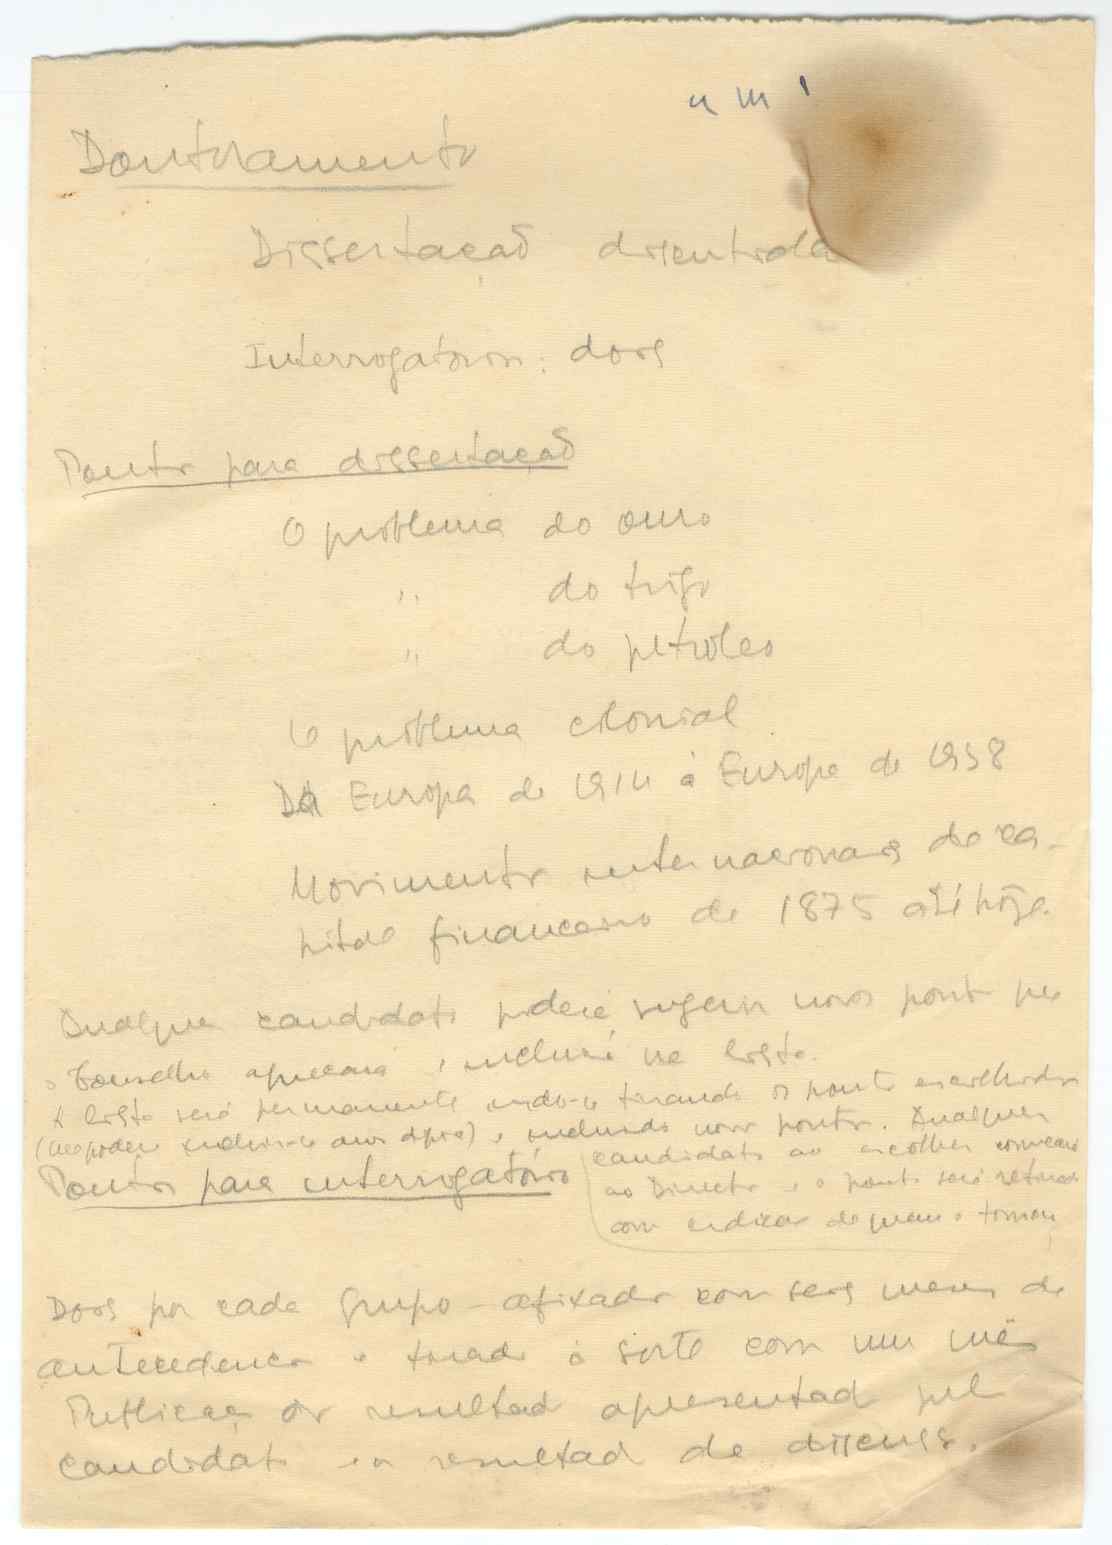 Doutoramento
Dissertação discutida
Interrogatorios: dois
Pontos para dissertação
O problema do ouro
" do trigo
" do petroleo
O problema colonial
Da Europa de 1914 à Europa de 1938
Movimentos internacionais de ca-
pital financeiro de 1875 até hoje.
Qualquer candidato poderá sugerir novos pontos que
o Conselho apreciará e incluirá na lista.
A lista será permanente indo-se tirando os pontos escolhidos
(  e incluindo novos pontos. Qualquer
candidato ao escolher comunica
ao Director e o ponto será retirado
com indicação de quem o tomou
Pontos para interrogatório
Dois por cada grupo - afixados com seis meses de
antecedencia e tirado à sorte com um mês
Publicação do resultado apresentado pelo
candidato e o resultado da discussão.